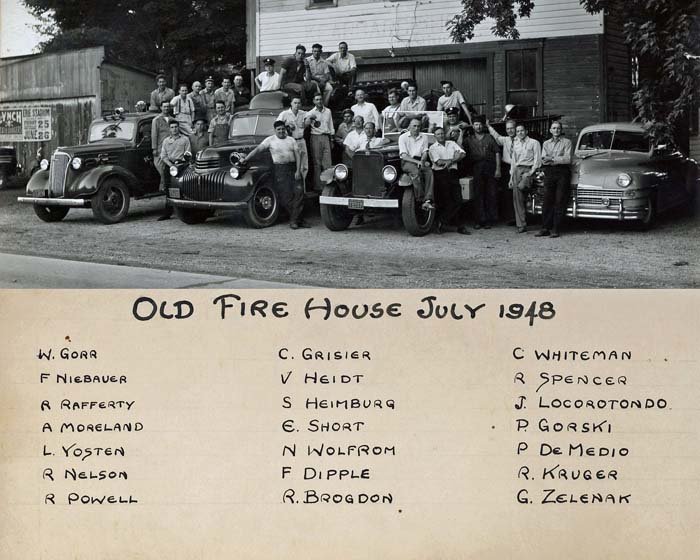 LYNCH
25
26
OLD FIRE HOUSE JULY 1948
W. GORR
F NIEBAUER
R RAFFERTY
A MORELAND
L. YOSTEN
R NELSON
R POWELL
C. GRISIER
V HEIDT
S HEIMBURG
E. SHORT
N WOLFROM
F DIPPLE
R. BROGDON
C WHITEMAN
R SPENCER
J. LOCOROTONDO
P. GORSKI
P DE MEDIO
R. KRUGER
G. ZELENAK